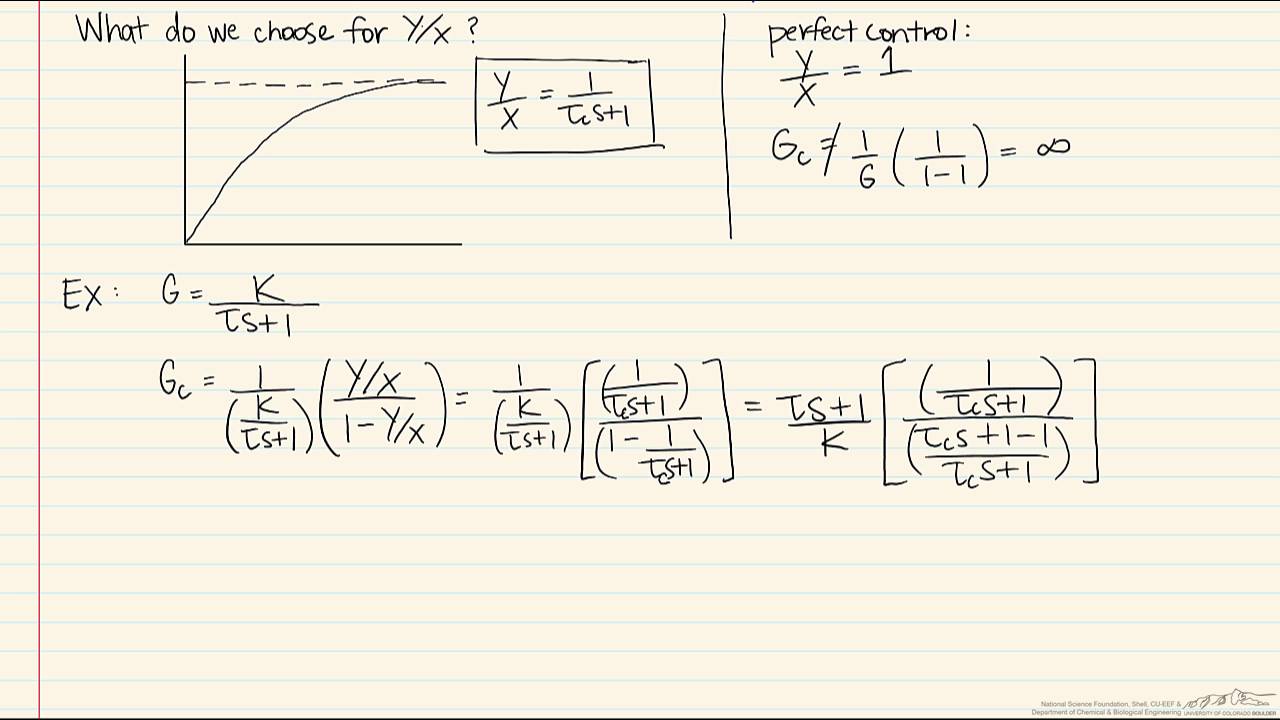 What do we choose for Y/X ?
Y/X = 1/(τcs+1)
perfect control:
Y/X = 1
Gc ≠ 1/G (1/(1-1)) = ∞
Ex: G = K/(τs+1)
Gc = 1/(K/(τs+1)) ((Y/X)/(1-Y/X)) = 1/(K/(τs+1)) [(1/(τcs+1))/(1 - 1/(τcs+1))] = (τs+1)/K [(1/(τcs+1))/((τcs+1-1)/(τcs+1))]
National Science Foundation, Shell, CU-EEF &
Department of Chemical & Biological Engineering UNIVERSITY OF COLORADO BOULDER